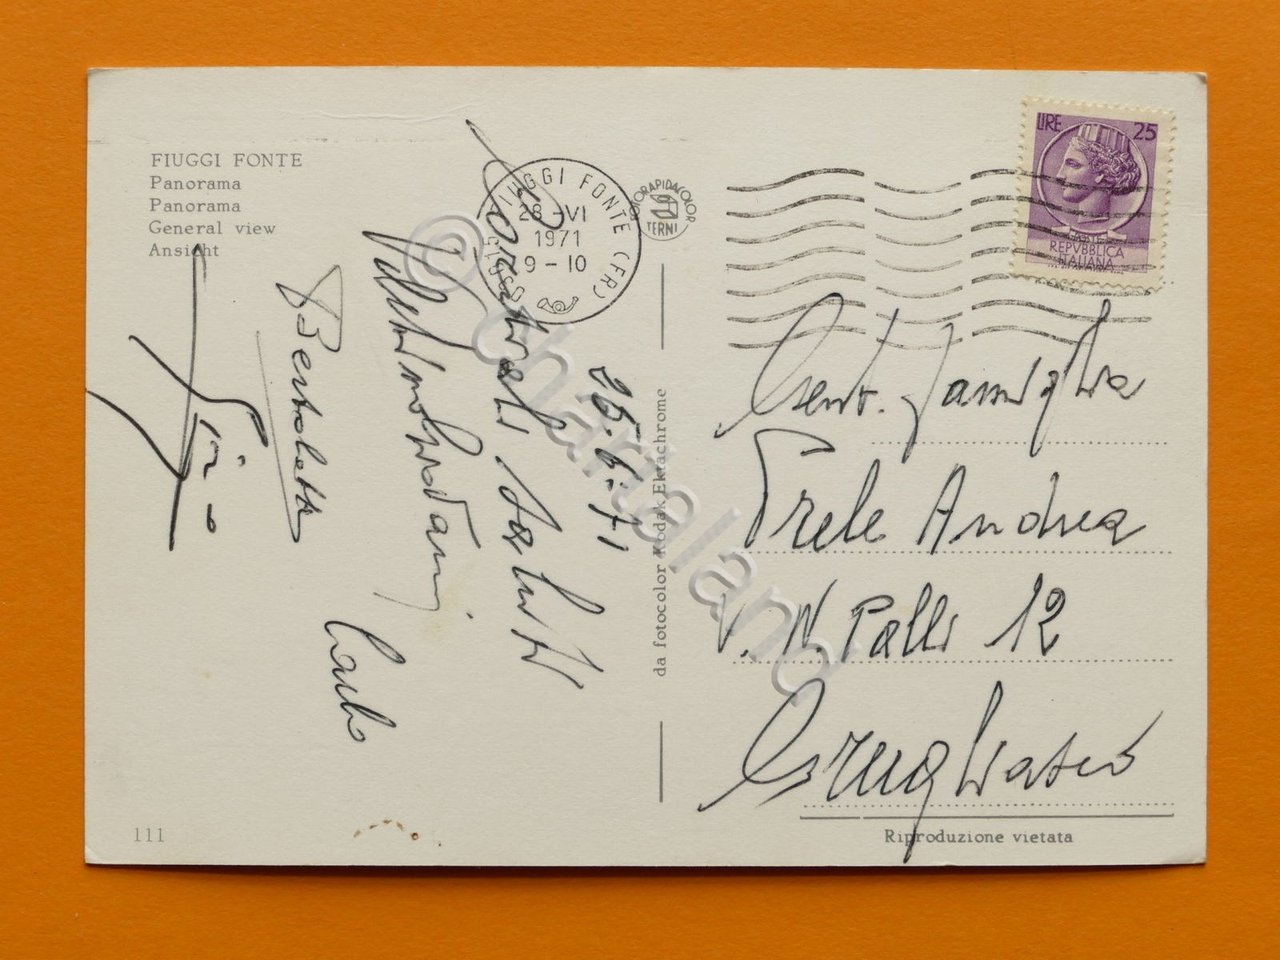 FIUGGI FONTE
Panorama
Panorama
General view
Ansicht
FIUGGI FONTE (FR)
28-VI
1971
9-10
FOTORAPIDACOLOR
TERNI
LIRE 25
REPVBBLICA
ITALIANA
25-6-71
Cordiali saluti
Bertoletti
Carlo
Gino
da fotocolor Kodak Ektachrome
Gent. Famiglia
Trele Andrea
V. N Palli 12
Grugliasco
Riproduzione vietata
111
© chartaland